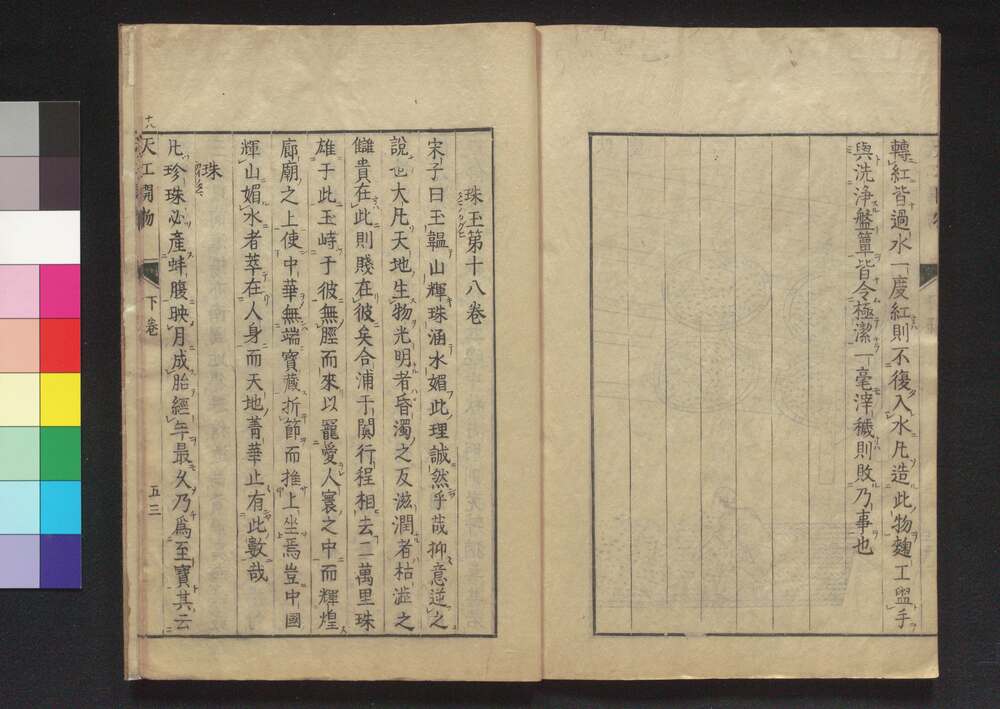 轉紅皆過水一度紅則不復入水凡造此物麴工盥手
與洗淨盤簟皆令極潔一毫滓穢則敗乃事也
珠玉第十八卷
宋子曰玉韞山輝珠涵水媚此理誠然乎哉抑意逆之
說也大凡天地生物光明者昏濁之反滋潤者枯澁之
讎貴在此則賤在彼矣合浦于闐行程相去二萬里珠
雄于此玉峙于彼無脛而來以寵愛人寰之中而輝煌
廊廟之上使中華無端寶藏折節而推上坐焉豈中國
輝山媚水者萃在人身而天地菁華止有此數哉
珠
凡珍珠必產蚌腹映月成胎經年最久乃爲至寶其云
天工開物
下卷
五三